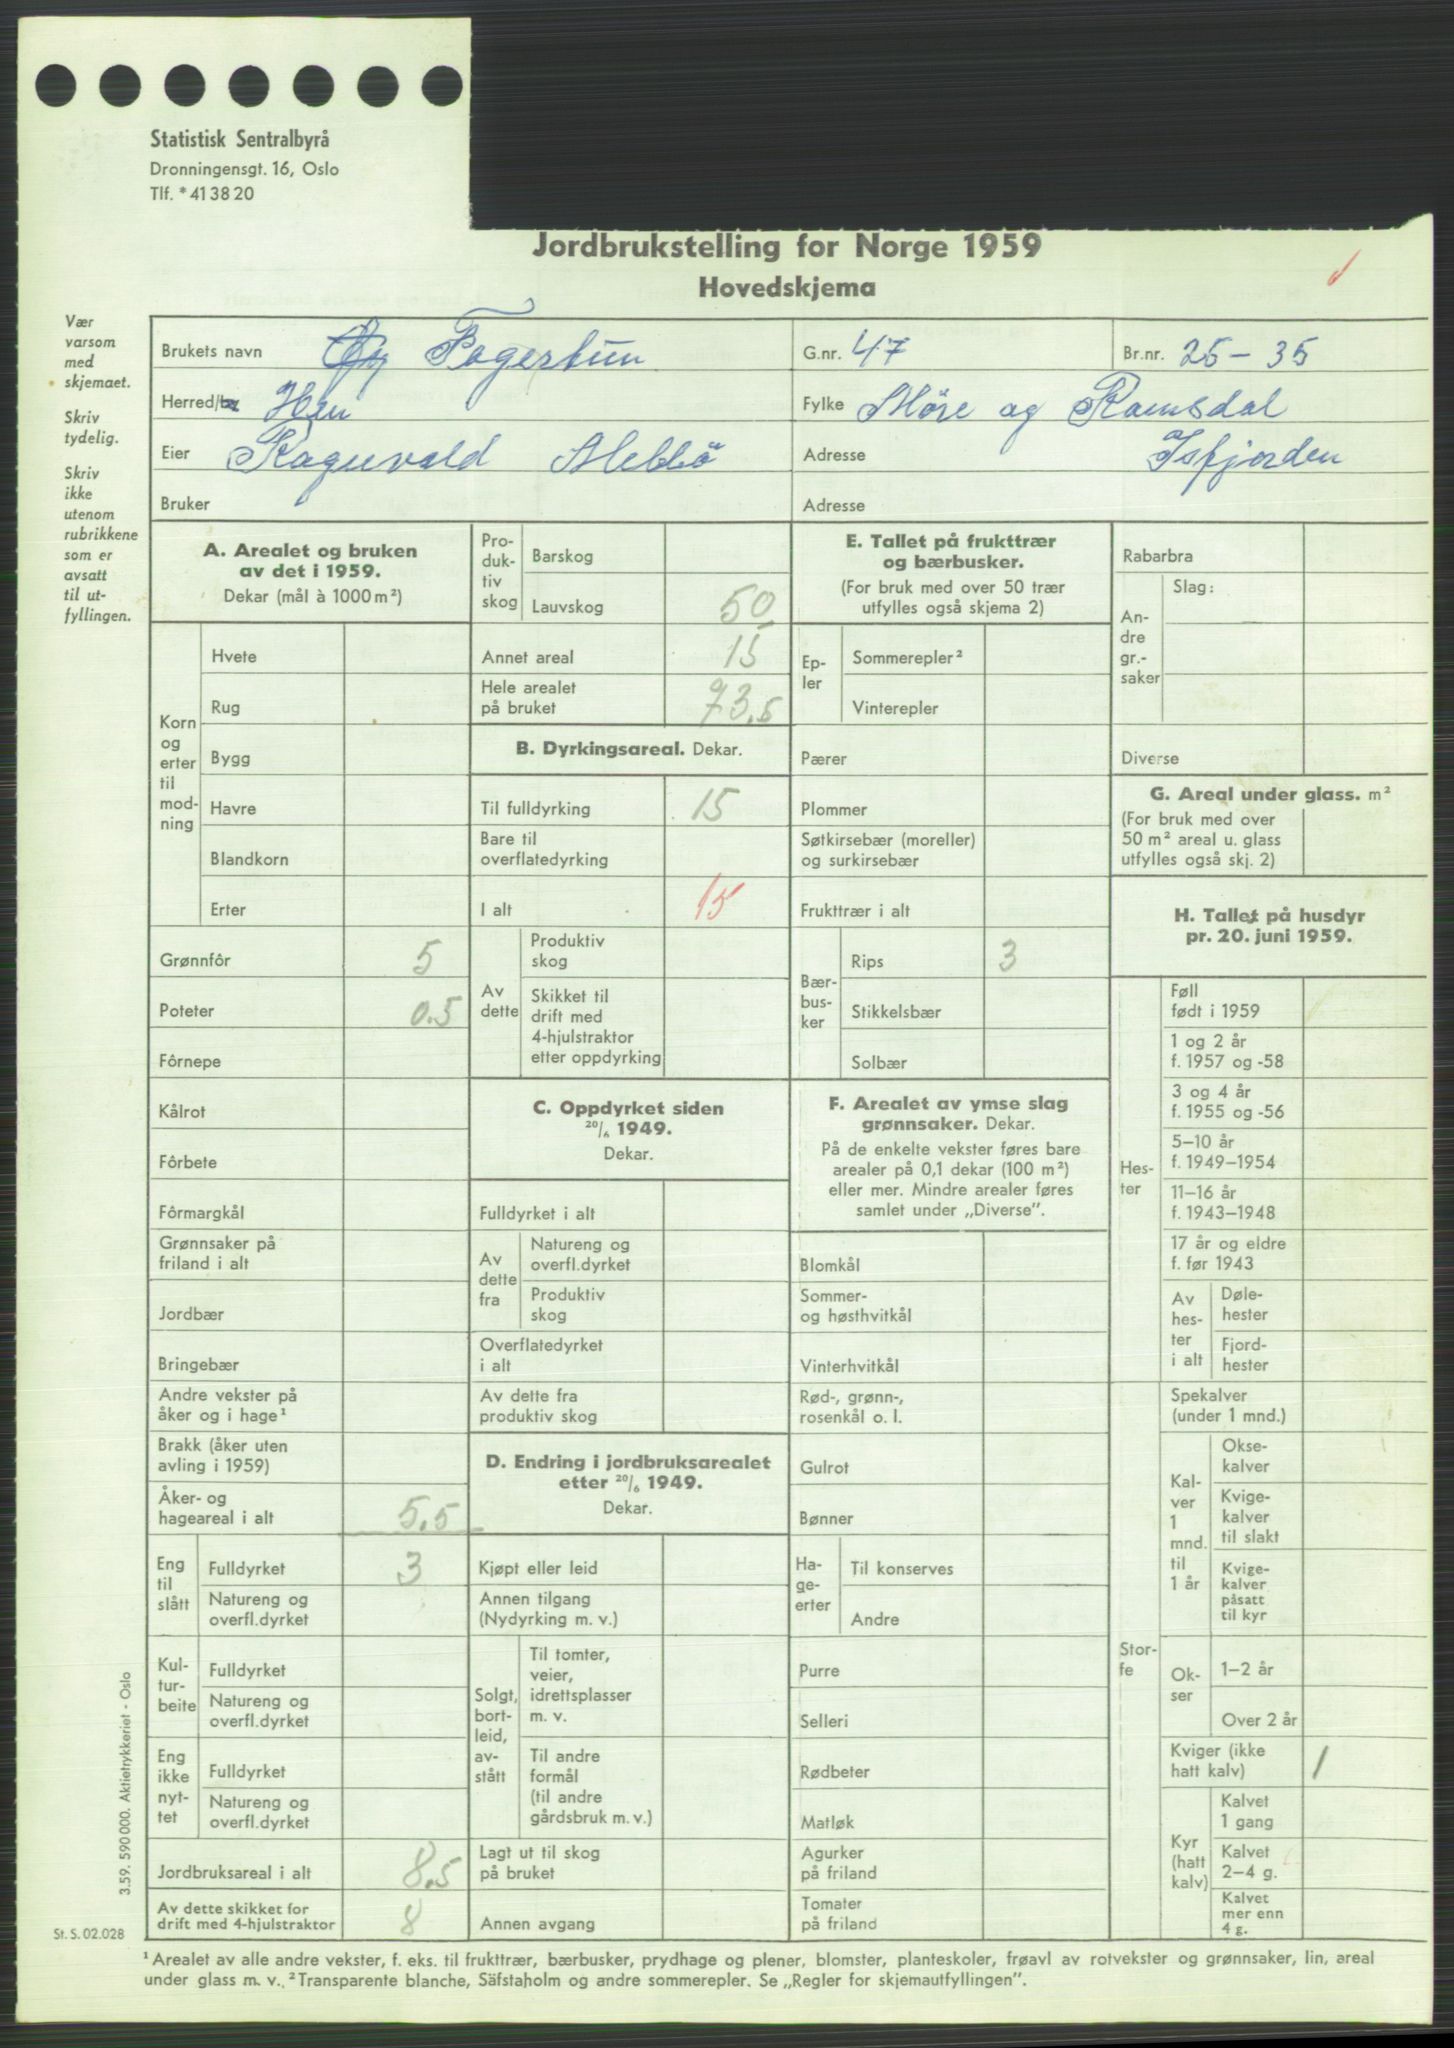 Statistisk Sentralbyrå
Dronningensgt. 16, Oslo
Tlf. *41 38 20
Jordbrukstelling for Norge 1959
Hovedskjema
Vær
varsom
med
skjemaet.
Skriv
tydelig.
Skriv
ikke
utenom
rubrikkene
som er
avsatt
til ut-
fyllingen.
Brukets navn Fagertun G.nr. 47 Br.nr. 25-35
Herred/by Hen Fylke Møre og Romsdal
Eier Ragnvald Adresse Isfjorden
Bruker Adresse
A. Arealet og bruken
av det i 1959.
Dekar (mål à 1000 m²)
Korn
og
erter
til
mod-
ning
Hvete
Rug
Bygg
Havre
Blandkorn
Erter
Grønnfôr 5
Poteter 0.5
Fôrnepe
Kålrot
Fôrbete
Fôrmargkål
Grønnsaker på
friland i alt
Jordbær
Bringebær
Andre vekster på
åker og i hage¹
Brakk (åker uten
avling i 1959)
Åker- og
hageareal i alt 5.5
Eng
til
slått
Fulldyrket 3
Natureng og
overfl.dyrket
Kul-
tur-
beite
Fulldyrket
Natureng og
overfl.dyrket
Eng
ikke
nyt-
tet
Fulldyrket
Natureng og
overfl.dyrket
Jordbruksareal i alt 8.5
Av dette skikket for
drift med 4-hjulstraktor 8
Pro-
duk-
tiv
skog
Barskog
Lauvskog 50
Annet areal 15
Hele arealet
på bruket 73.5
B. Dyrkingsareal. Dekar.
Til fulldyrking 15
Bare til
overflatedyrking
I alt 15
Av
dette
Produktiv
skog
Skikket til
drift med
4-hjulstraktor
etter oppdyrking
C. Oppdyrket siden
20/6 1949.
Dekar.
Fulldyrket i alt
Av
dette
fra
Natureng og
overfl.dyrket
Produktiv
skog
Overflatedyrket
i alt
Av dette fra
produktiv skog
D. Endring i jordbruksarealet
etter 20/6 1949.
Dekar.
Kjøpt eller leid
Annen tilgang
(Nydyrking m. v.)
Solgt,
bort-
leid,
av-
stått
Til tomter,
veier,
idrettsplasser
m. v.
Til andre
formål
(til andre
gårdsbruk m. v.)
Lagt ut til skog
på bruket
Annen avgang
E. Tallet på frukttrær
og bærbusker.
(For bruk med over 50 trær
utfylles også skjema 2)
Ep-
ler
Sommerepler²
Vinterepler
Pærer
Plommer
Søtkirsebær (moreller)
og surkirsebær
Frukttrær i alt
Bær-
bus-
ker
Rips 3
Stikkelsbær
Solbær
F. Arealet av ymse slag
grønnsaker. Dekar.
På de enkelte vekster føres bare
arealer på 0,1 dekar (100 m²)
eller mer. Mindre arealer føres
samlet under „Diverse”.
Blomkål
Sommer-
og høsthvitkål
Vinterhvitkål
Rød-, grønn-,
rosenkål o. l.
Gulrot
Bønner
Ha-
ge-
erter
Til konserves
Andre
Purre
Selleri
Rødbeter
Matløk
Agurker
på friland
Tomater
på friland
Rabarbra
An-
dre
gr.-
saker
Slag:
Diverse
G. Areal under glass. m²
(For bruk med over
50 m² areal u. glass
utfylles også skj. 2)
H. Tallet på husdyr
pr. 20. juni 1959.
Hes-
ter
Føll
født i 1959
1 og 2 år
f. 1957 og -58
3 og 4 år
f. 1955 og -56
5–10 år
f. 1949–1954
11–16 år
f. 1943–1948
17 år og eldre
f. før 1943
Av
hes-
ter
i alt
Døle-
hester
Fjord-
hester
Stor-
fe
Spekalver
(under 1 mnd.)
Kal-
ver
1
mnd.
til
1 år
Okse-
kalver
Kvige-
kalver
til slakt
Kvige-
kalver
påsatt
til kyr
Ok-
ser
1–2 år
Over 2 år
Kviger (ikke
hatt kalv) 1
Kyr
(hatt
kalv)
Kalvet
1 gang
Kalvet
2–4 g.
Kalvet
mer enn
4 g.
3.59. 590 000. Aktietrykkeriet - Oslo
St. S. 02.028
¹ Arealet av alle andre vekster, f. eks. til frukttrær, bærbusker, prydhage og plener, blomster, planteskoler, frøavl av rotvekster og grønnsaker, lin, areal
under glass m. v. ² Transparente blanche, Säfstaholm og andre sommerepler. Se „Regler for skjemautfyllingen”.